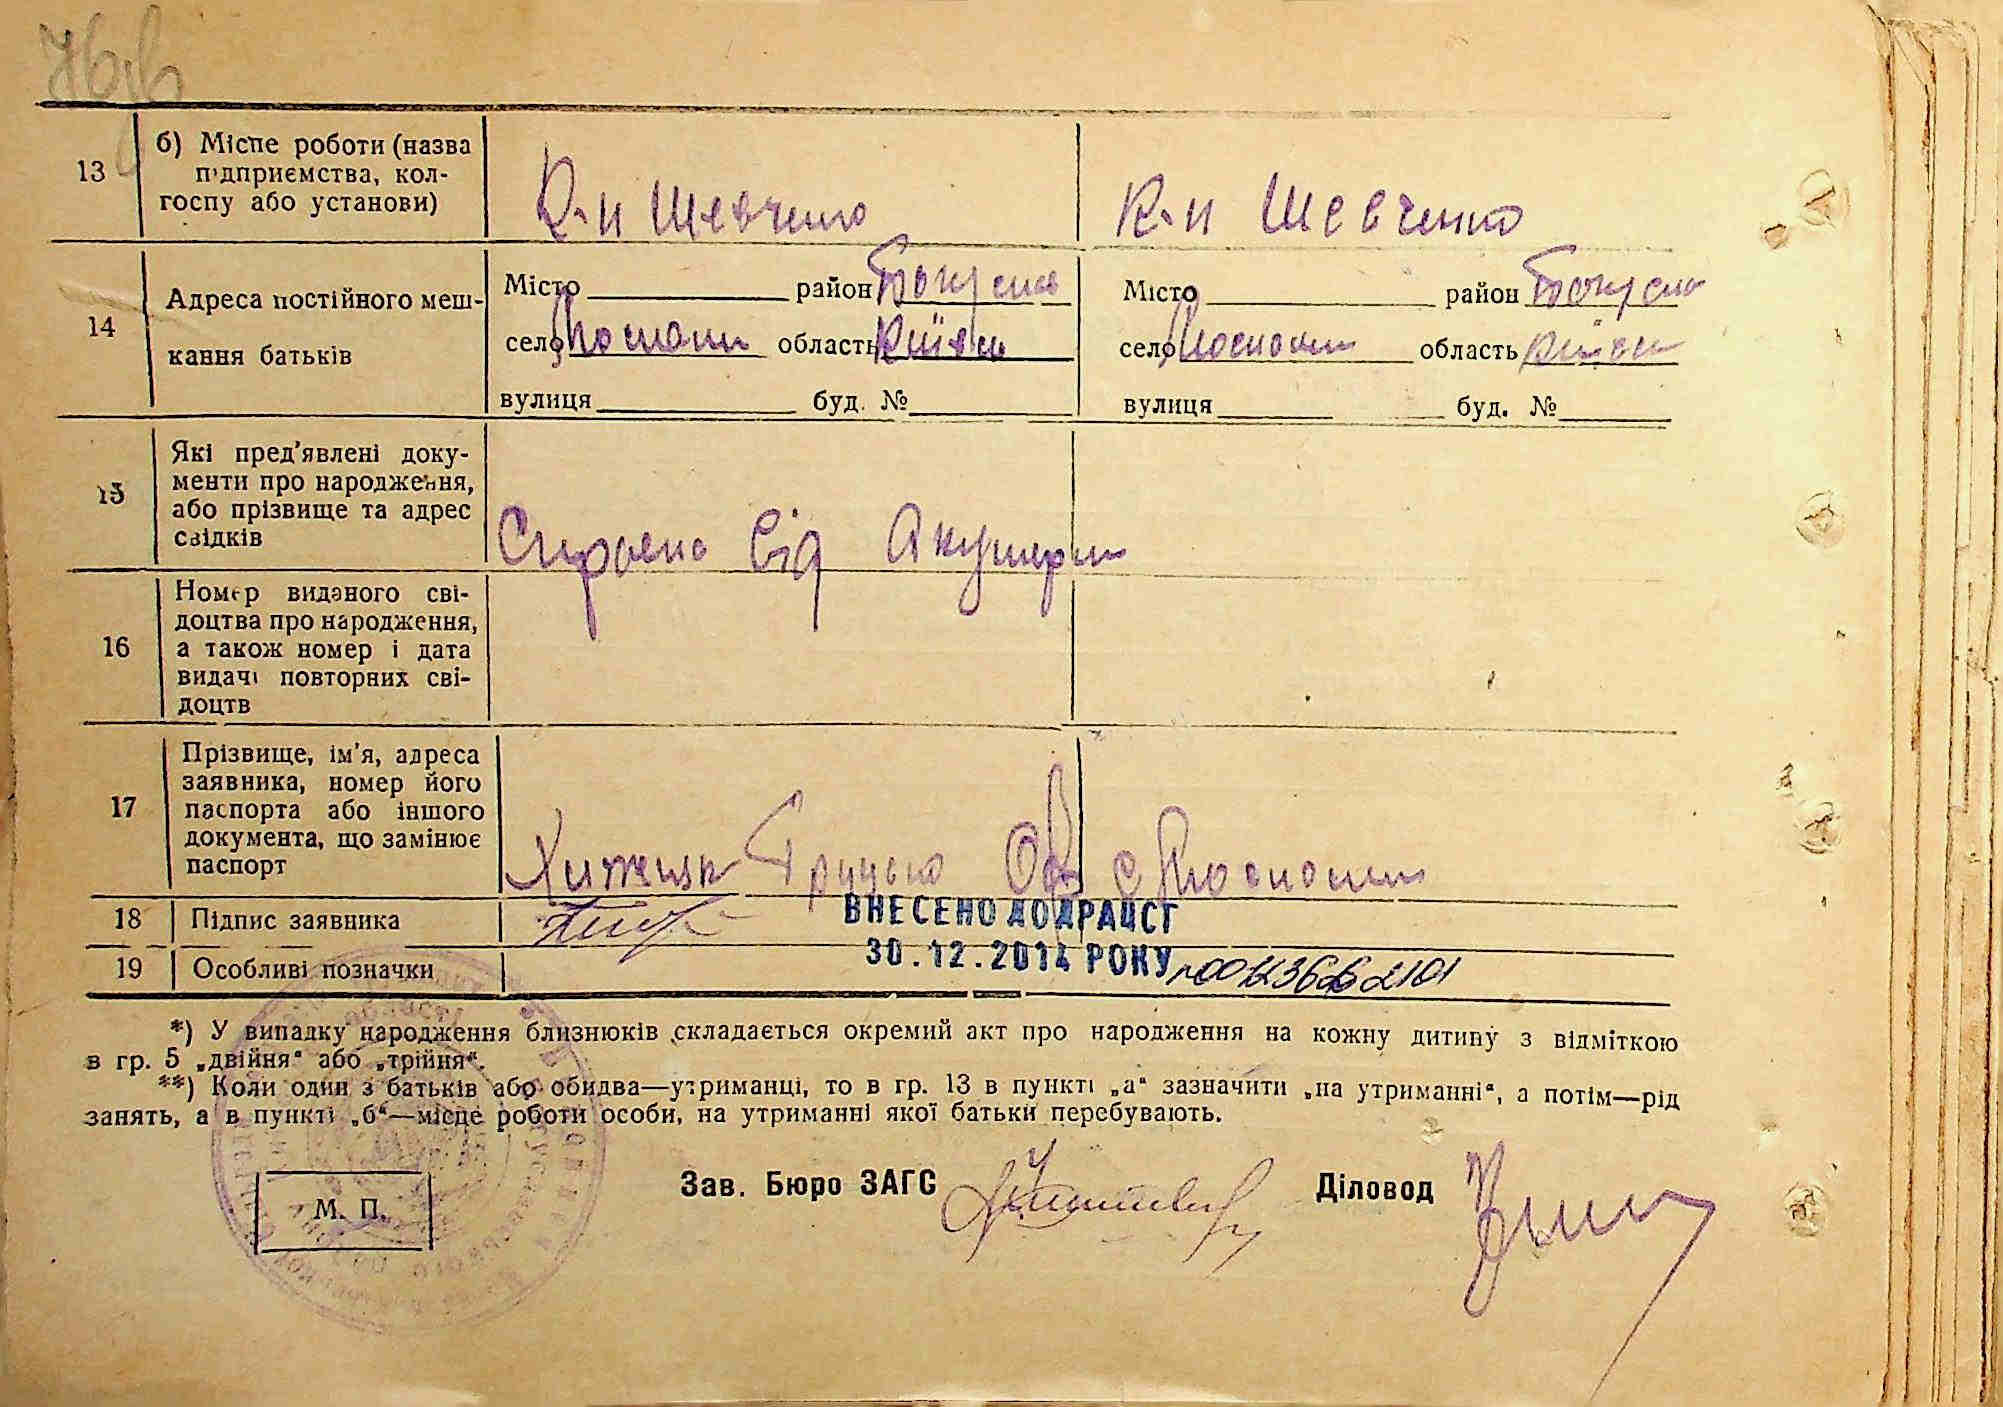 13
б) Місце роботи (назва
підприємства, кол-
госпу або установи)
К-п Шевченко
К-п Шевченко
14
Адреса постійного меш-
кання батьків
Місто район Богуслав
село область Київсь
вулиця буд. №
Місто район Богуслав
село область Київсь
вулиця буд. №
15
Які пред'явлені доку-
менти про народження,
або прізвище та адрес
свідків
від Акушерки
16
Номер виданого сві-
доцтва про народження,
а також номер і дата
видачі повторних сві-
доцтв
17
Прізвище, ім'я, адреса
заявника, номер його
паспорта або іншого
документа, що замінює
паспорт
18 Підпис заявника
ВНЕСЕНО ДО ДРАЦСГ
19 Особливі позначки
30.12.2014 РОКУ
*) У випадку народження близнюків складається окремий акт про народження на кожну дитину з відміткою
в гр. 5 „двійня“ або „трійня“.
**) Коли один з батьків або обидва—утриманці, то в гр. 13 в пункті „а“ зазначити „на утриманні“, а потім—рід
занять, а в пункті „б“—місце роботи особи, на утриманні якої батьки перебувають.
Зав. Бюро ЗАГС
Діловод
М. П.